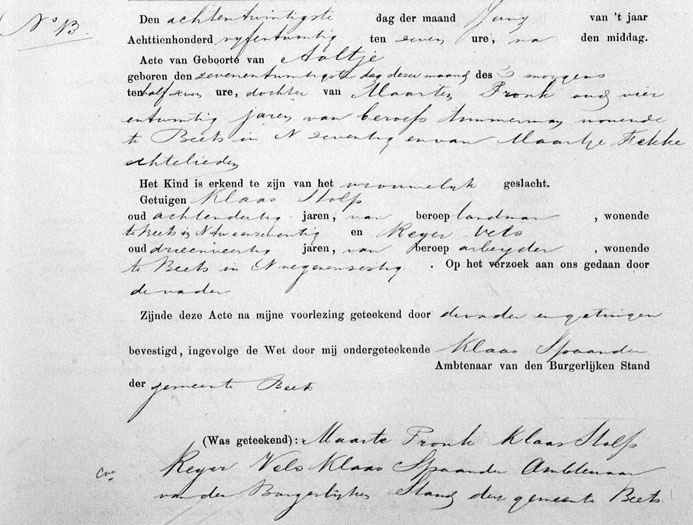 No 13.
Den achtentwintigste dag der maand Juny van 't jaar
Achttienhonderd vyfentwintig ten zeven ure, na den middag.
Acte van Geboorte van Aaltje
geboren den zevenentwintigste dag dezer maand des morgens
ten half zeven ure, dochter van Maarten Pronk oud vier
entwintig jaren van beroep timmerman wonende
te Beets in N zeventig en van Maartje Fekke
echtelieden
Het Kind is erkend te zijn van het vrouwelyk geslacht.
Getuigen Klaas Stolp
oud achtendertig jaren, van beroep landman, wonende
te Beets in N tweenzeventig en Reyer Vels
oud drieenveertig jaren, van beroep arbeyder, wonende
te Beets in N negenenzestig. Op het verzoek aan ons gedaan door
de vader
Zijnde deze Acte na mijne voorlezing geteekend door de vader en getuigen
bevestigd, ingevolge de Wet door mij ondergeteekende Klaas Spaander
Ambtenaar van den Burgerlijken Stand
der gemeente Beets
(Was geteekend): Maarte Pronk Klaas Stolp
Reyer Vels Klaas Spaander Ambtenaar
van den Burgerlyken Stand der gemeente Beets